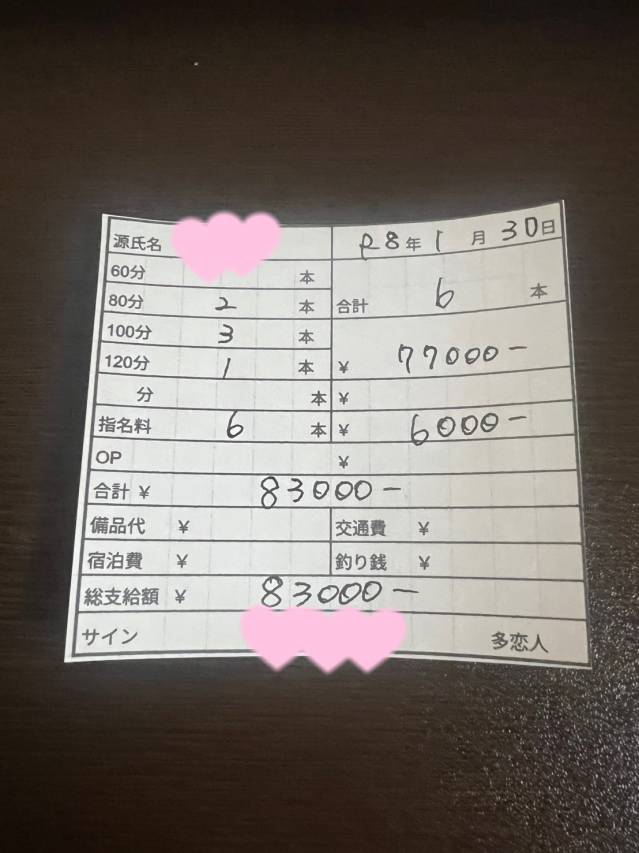 源氏名 R8年 1月 30日
60分 本
80分 2 本 合計 6 本
100分 3 本
120分 1 本 ¥ 77000-
分 本 ¥
指名料 6 本 ¥ 6000-
OP ¥
合計 ¥ 83000-
備品代 ¥ 交通費 ¥
宿泊費 ¥ 釣り銭 ¥
総支給額 ¥ 83000-
サイン 多恋人